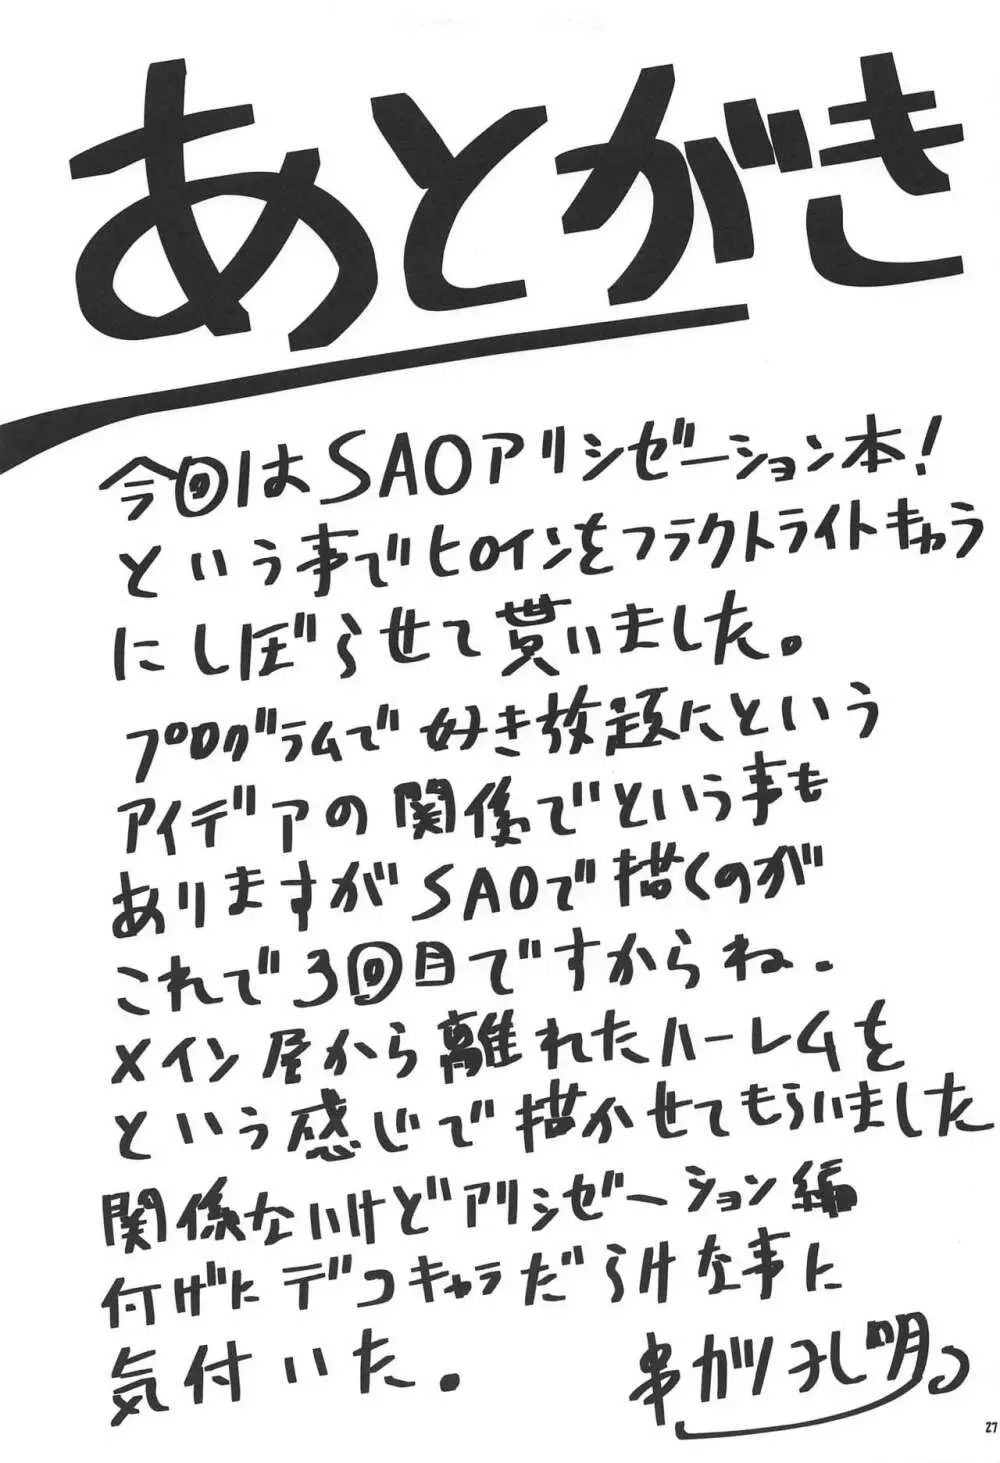 あとがき
今回はSAOアリシゼーション本!
という事でヒロインをフラクトライトキャラ
にしぼらせて貰いました。
プログラムで好き放題にという
アイデアの関係でという事も
ありますがSAOで描くのが
これで3回目ですからね.
メイン屋から離れたハーレムを
という感じで描かせてもらいました
関係ないけどアリシゼーション編
付けにデコキャラだらけな事に
気付いた。
串カツ孔明
27